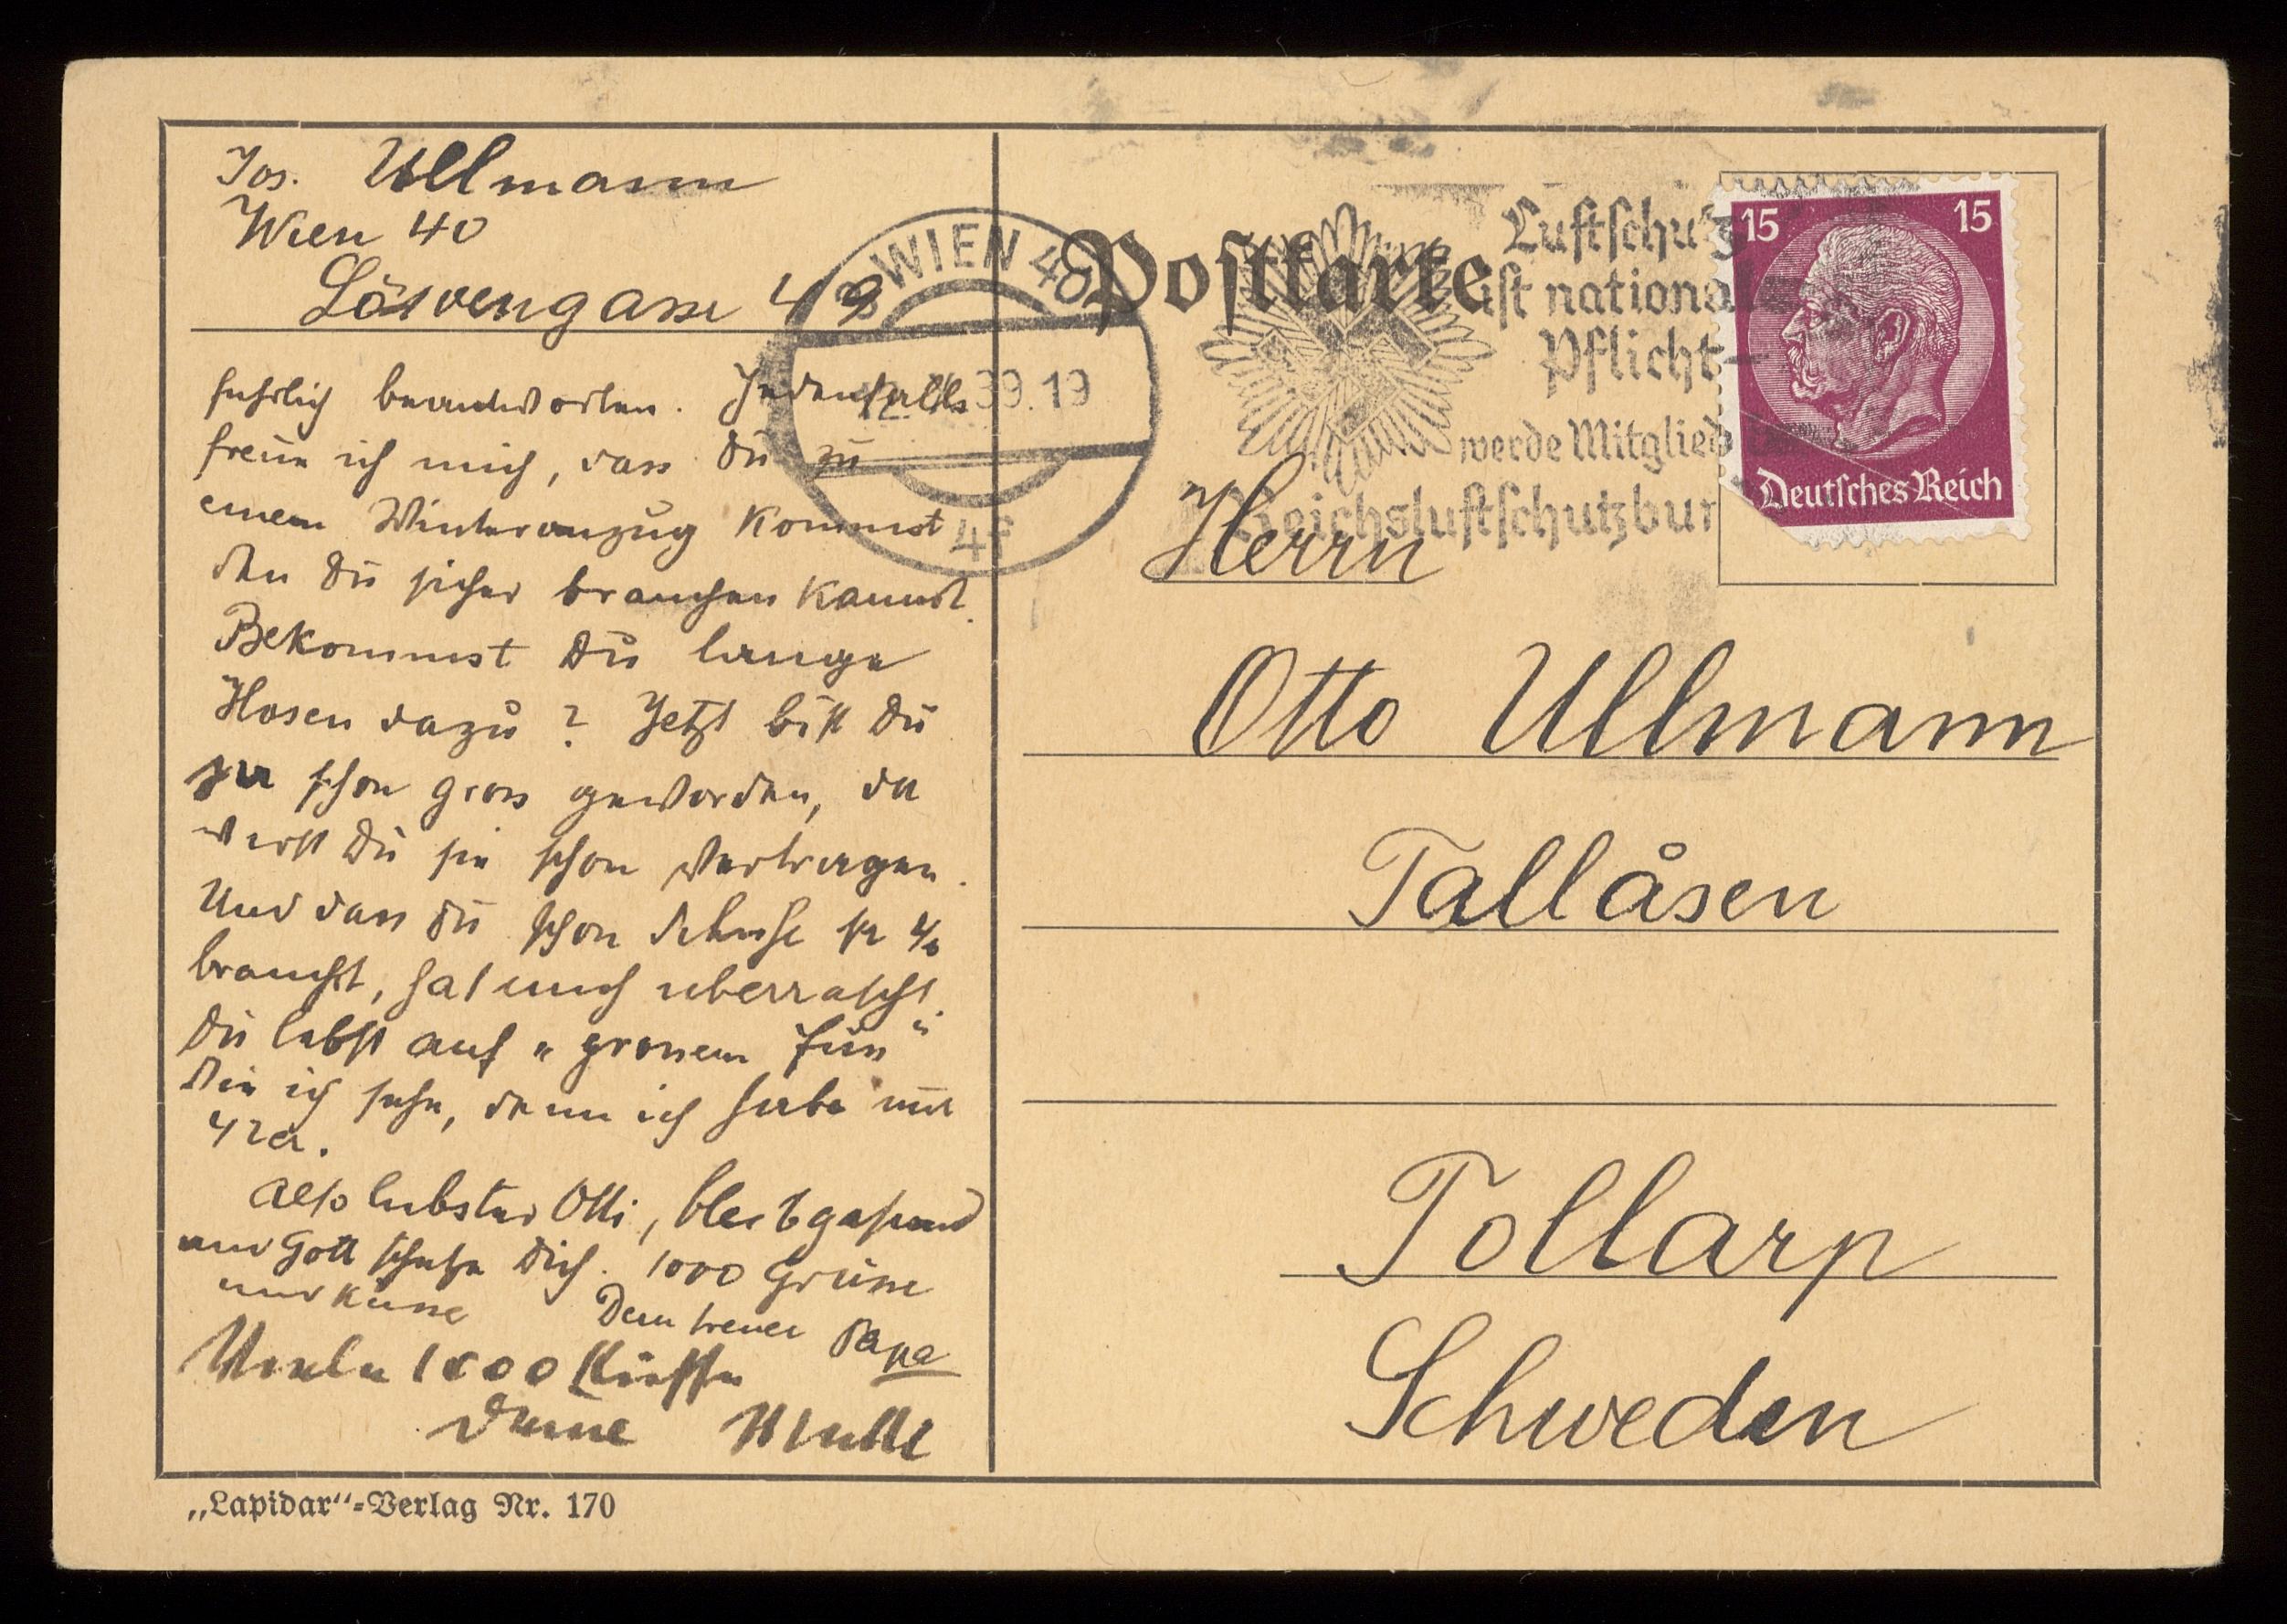 Jos. Ullmann
Wien 40
Löwengasse 49
führlich beantworten. Jedenfalls
freue ich mich, dass Du zu
einem Winteranzug kommst
den Du sicher brauchen kannst.
Bekommst Du lange
Hosen dazu? Jetzt bist Du
ja schon gross geworden, da
wirst Du sie schon vertragen.
Und dass Du schon Schuhe
brauchst, hat mich überrascht.
Du lebst auf „grossem Fuss"
wie ich sehe, denn ich habe nur
42er.
Also liebster Otti, bleib gesund
und Gott schütze Dich. 1000 Grüsse
und Küsse Dein treuer Papa
Viele 1000 Küsse
Deine Mutti
„Lapidar"-Verlag Nr. 170
WIEN 40
39.19
Postkarte
Luftschutz
ist nationale
Pflicht-
werde Mitglied
Reichsluftschutzbun
15 15
Deutsches Reich
Herrn
Otto Ullmann
Tallåsen
Tollarp
Schweden